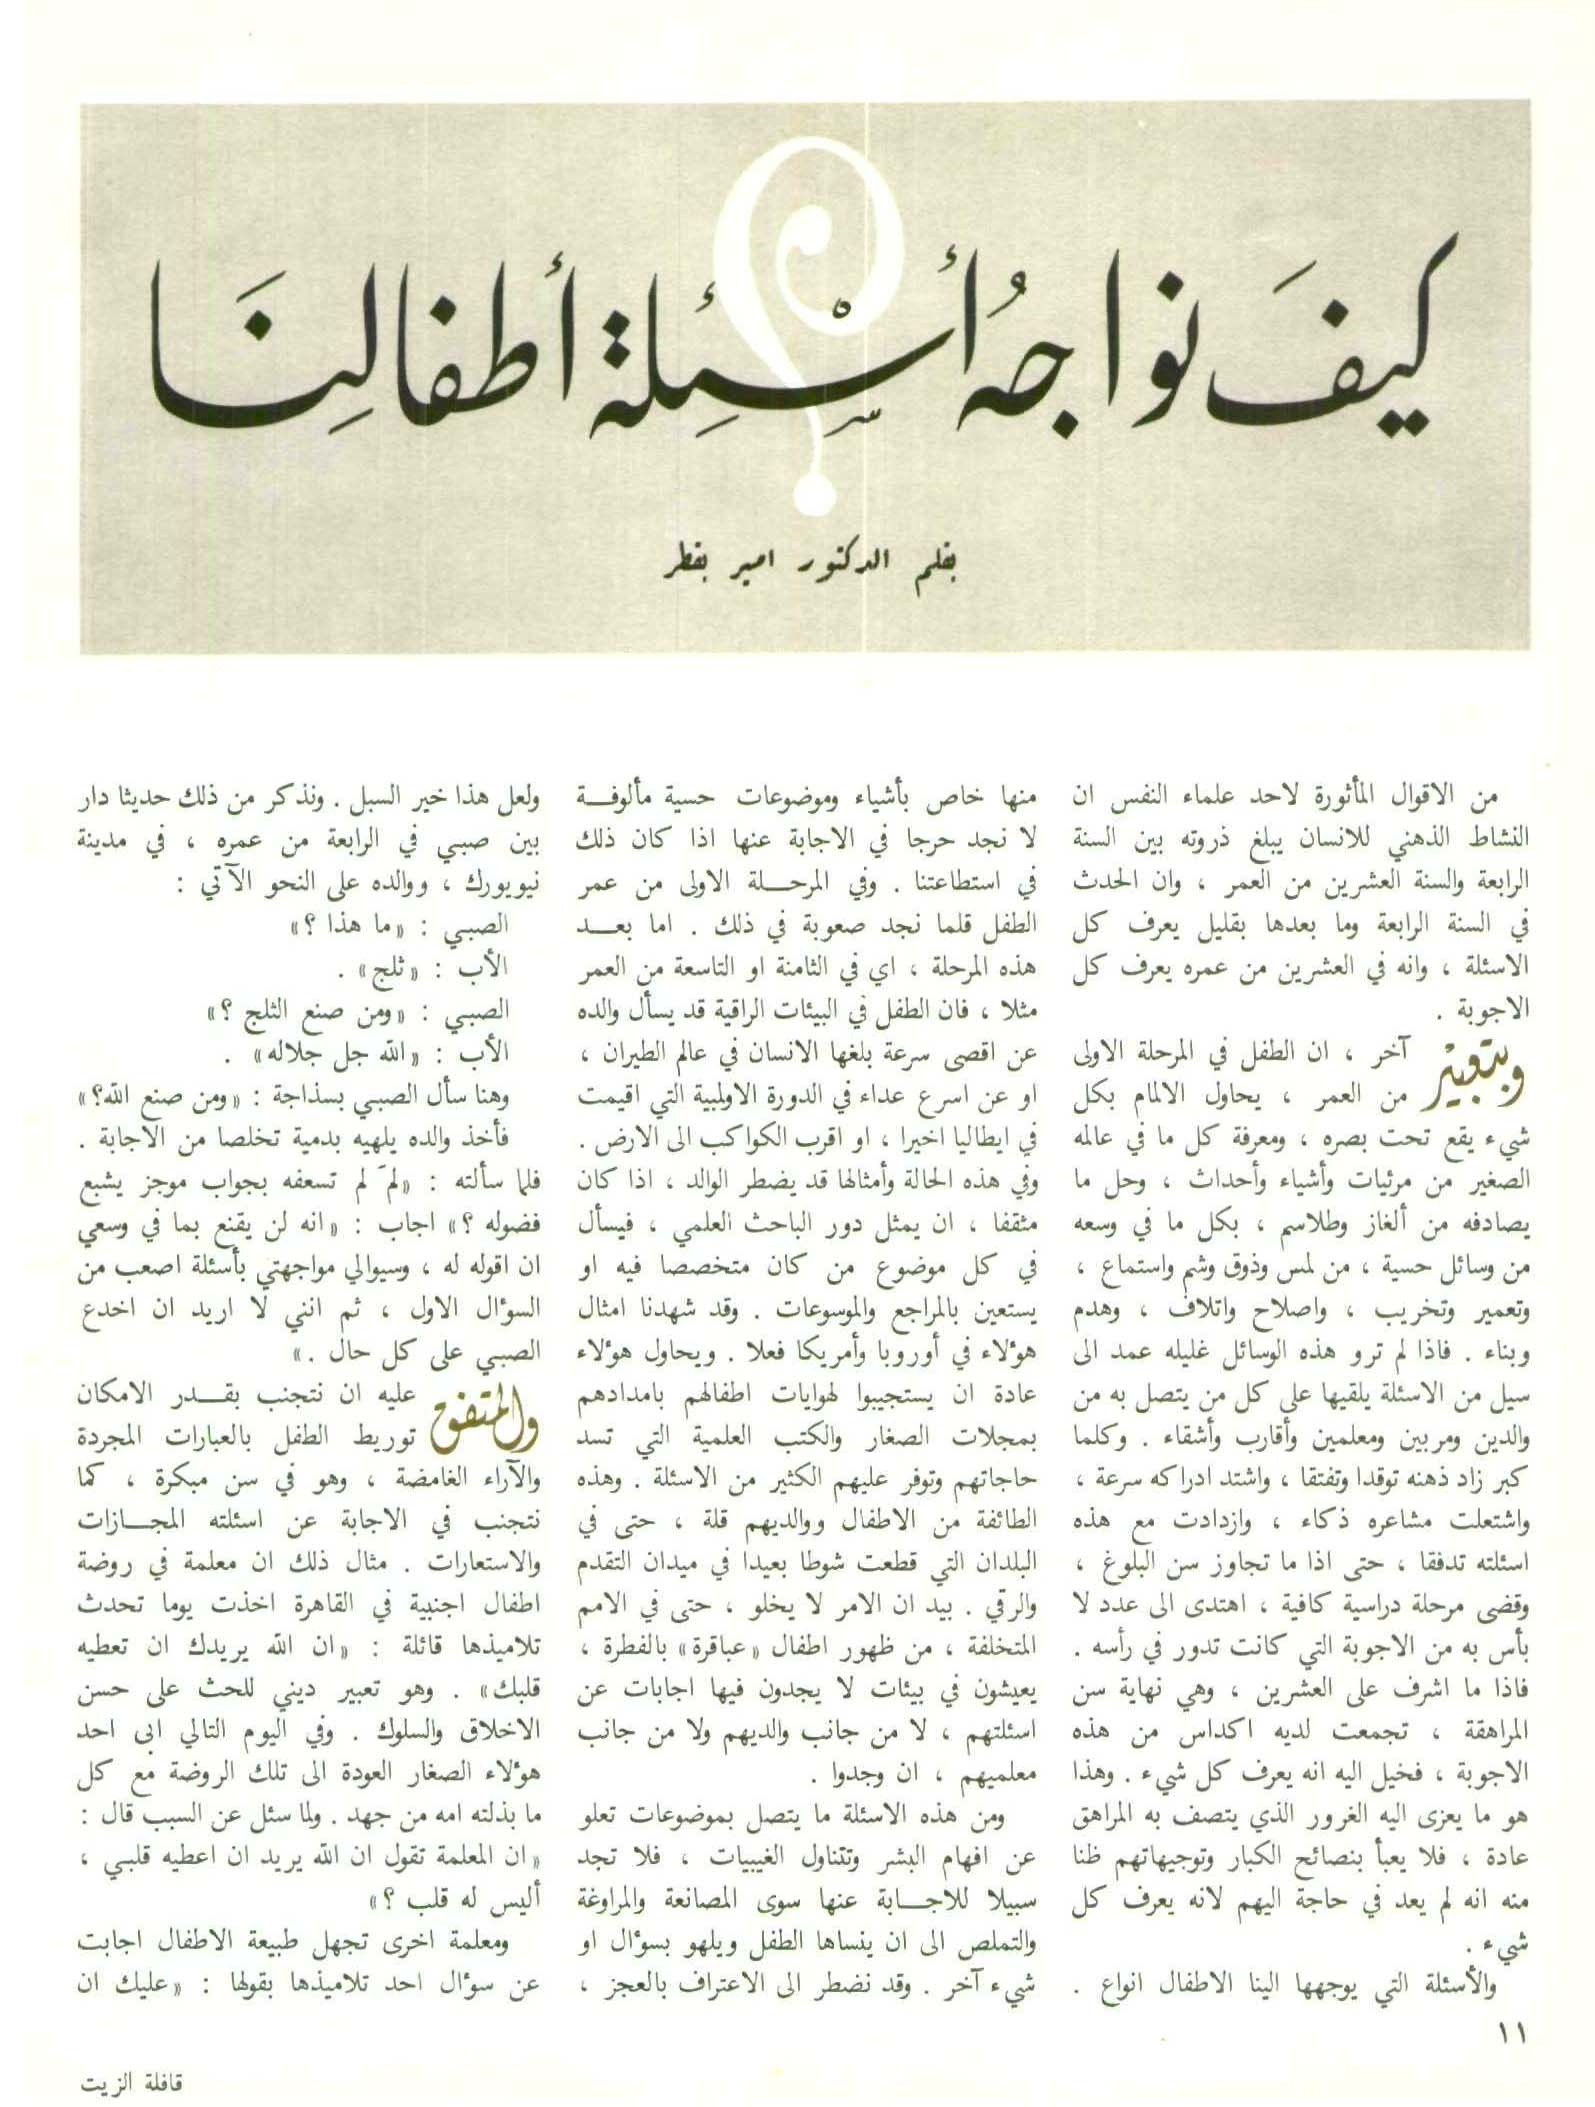 كيفَ نواجهُ أسْئِلة أطفالِنَا
بقلم الدكتور امير بقطر
من الاقوال المأثورة لاحد علماء النفس ان
النشاط الذهني للانسان يبلغ ذروته بين السنة
الرابعة والسنة العشرين من العمر ، وان الحدث
في السنة الرابعة وما بعدها بقليل يعرف كل
الاسئلة ، وانه في العشرين من عمره يعرف كل
الاجوبة .
وبتعبير آخر ، ان الطفل في المرحلة الاولى
من العمر ، يحاول الالمام بكل
شيء يقع تحت بصره ، ومعرفة كل ما في عالمه
الصغير من مرئيات وأشياء وأحداث ، وحل ما
يصادفه من ألغاز وطلاسم ، بكل ما في وسعه
من وسائل حسية ، من لمس وذوق وشم واستماع ،
وتعمير وتخريب ، واصلاح واتلاف ، وهدم
وبناء . فاذا لم ترو هذه الوسائل غليله عمد الى
سيل من الاسئلة يلقيها على كل من يتصل به من
والدين ومربين ومعلمين وأقارب وأشقاء . وكلما
كبر زاد ذهنه توقدا وتفتقا ، واشتد ادراكه سرعة ،
واشتعلت مشاعره ذكاء ، وازدادت مع هذه
اسئلته تدفقا ، حتى اذا ما تجاوز سن البلوغ ،
وقضى مرحلة دراسية كافية ، اهتدى الى عدد لا
بأس به من الاجوبة التي كانت تدور في رأسه .
فاذا ما اشرف على العشرين ، وهي نهاية سن
المراهقة ، تجمعت لديه اكداس من هذه
الاجوبة ، فخيل اليه انه يعرف كل شيء . وهذا
هو ما يعزى اليه الغرور الذي يتصف به المراهق
عادة ، فلا يعبأ بنصائح الكبار وتوجيهاتهم ظنا
منه انه لم يعد في حاجة اليهم لانه يعرف كل
شيء .
والأسئلة التي يوجهها الينا الاطفال انواع .
منها خاص بأشياء وموضوعات حسية مألوفة
لا نجد حرجا في الاجابة عنها اذا كان ذلك
في استطاعتنا . وفي المرحلة الاولى من عمر
الطفل قلما نجد صعوبة في ذلك . اما بعد
هذه المرحلة ، اي في الثامنة او التاسعة من العمر
مثلا ، فان الطفل في البيئات الراقية قد يسأل والده
عن اقصى سرعة بلغها الانسان في عالم الطيران ،
او عن اسرع عداء في الدورة الاولمبية التي اقيمت
في ايطاليا اخيرا ، او اقرب الكواكب الى الارض .
وفي هذه الحالة وأمثالها قد يضطر الوالد ، اذا كان
مثقفا ، ان يمثل دور الباحث العلمي ، فيسأل
في كل موضوع من كان متخصصا فيه او
يستعين بالمراجع والموسوعات . وقد شهدنا امثال
هؤلاء في أوروبا وأمريكا فعلا . ويحاول هؤلاء
عادة ان يستجيبوا لهوايات اطفالهم بامدادهم
بمجلات الصغار والكتب العلمية التي تسد
حاجاتهم وتوفر عليهم الكثير من الاسئلة . وهذه
الطائفة من الاطفال ووالديهم قلة ، حتى في
البلدان التي قطعت شوطا بعيدا في ميدان التقدم
والرقي . بيد ان الامر لا يخلو ، حتى في الامم
المتخلفة ، من ظهور اطفال «عباقرة» بالفطرة ،
يعيشون في بيئات لا يجدون فيها اجابات عن
اسئلتهم ، لا من جانب والديهم ولا من جانب
معلميهم ، ان وجدوا .
ومن هذه الاسئلة ما يتصل بموضوعات تعلو
عن افهام البشر وتتناول الغيبيات ، فلا تجد
سبيلا للاجابة عنها سوى المصانعة والمراوغة
والتملص الى ان ينساها الطفل ويلهو بسؤال او
شيء آخر . وقد نضطر الى الاعتراف بالعجز ،
ولعل هذا خير السبل . ونذكر من ذلك حديثا دار
بين صبي في الرابعة من عمره ، في مدينة
نيويورك ، ووالده على النحو الآتي :
الصبي : «ما هذا ؟»
الأب : «ثلج» .
الصبي : «ومن صنع الثلج ؟»
الأب : «الله جل جلاله» .
وهنا سأل الصبي بسذاجة : «ومن صنع الله؟»
فأخذ والده يلهيه بدمية تخلصا من الاجابة .
فلما سألته : «لمَ لم تسعفه بجواب موجز يشبع
فضوله ؟» اجاب : «انه لن يقنع بما في وسعي
ان اقوله له ، وسيوالي مواجهتي بأسئلة اصعب من
السؤال الاول ، ثم انني لا اريد ان اخدع
الصبي على كل حال .»
والمتفق عليه ان نتجنب بقدر الامكان
توريط الطفل بالعبارات المجردة
والآراء الغامضة ، وهو في سن مبكرة ، كما
نتجنب في الاجابة عن اسئلته المجازات
والاستعارات . مثال ذلك ان معلمة في روضة
اطفال اجنبية في القاهرة اخذت يوما تحدث
تلاميذها قائلة : «ان الله يريدك ان تعطيه
قلبك» . وهو تعبير ديني للحث على حسن
الاخلاق والسلوك . وفي اليوم التالي ابى احد
هؤلاء الصغار العودة الى تلك الروضة مع كل
ما بذلته امه من جهد . ولما سئل عن السبب قال :
«ان المعلمة تقول ان الله يريد ان اعطيه قلبي ،
أليس له قلب ؟»
ومعلمة اخرى تجهل طبيعة الاطفال اجابت
عن سؤال احد تلاميذها بقولها : «عليك ان
١١
قافلة الزيت